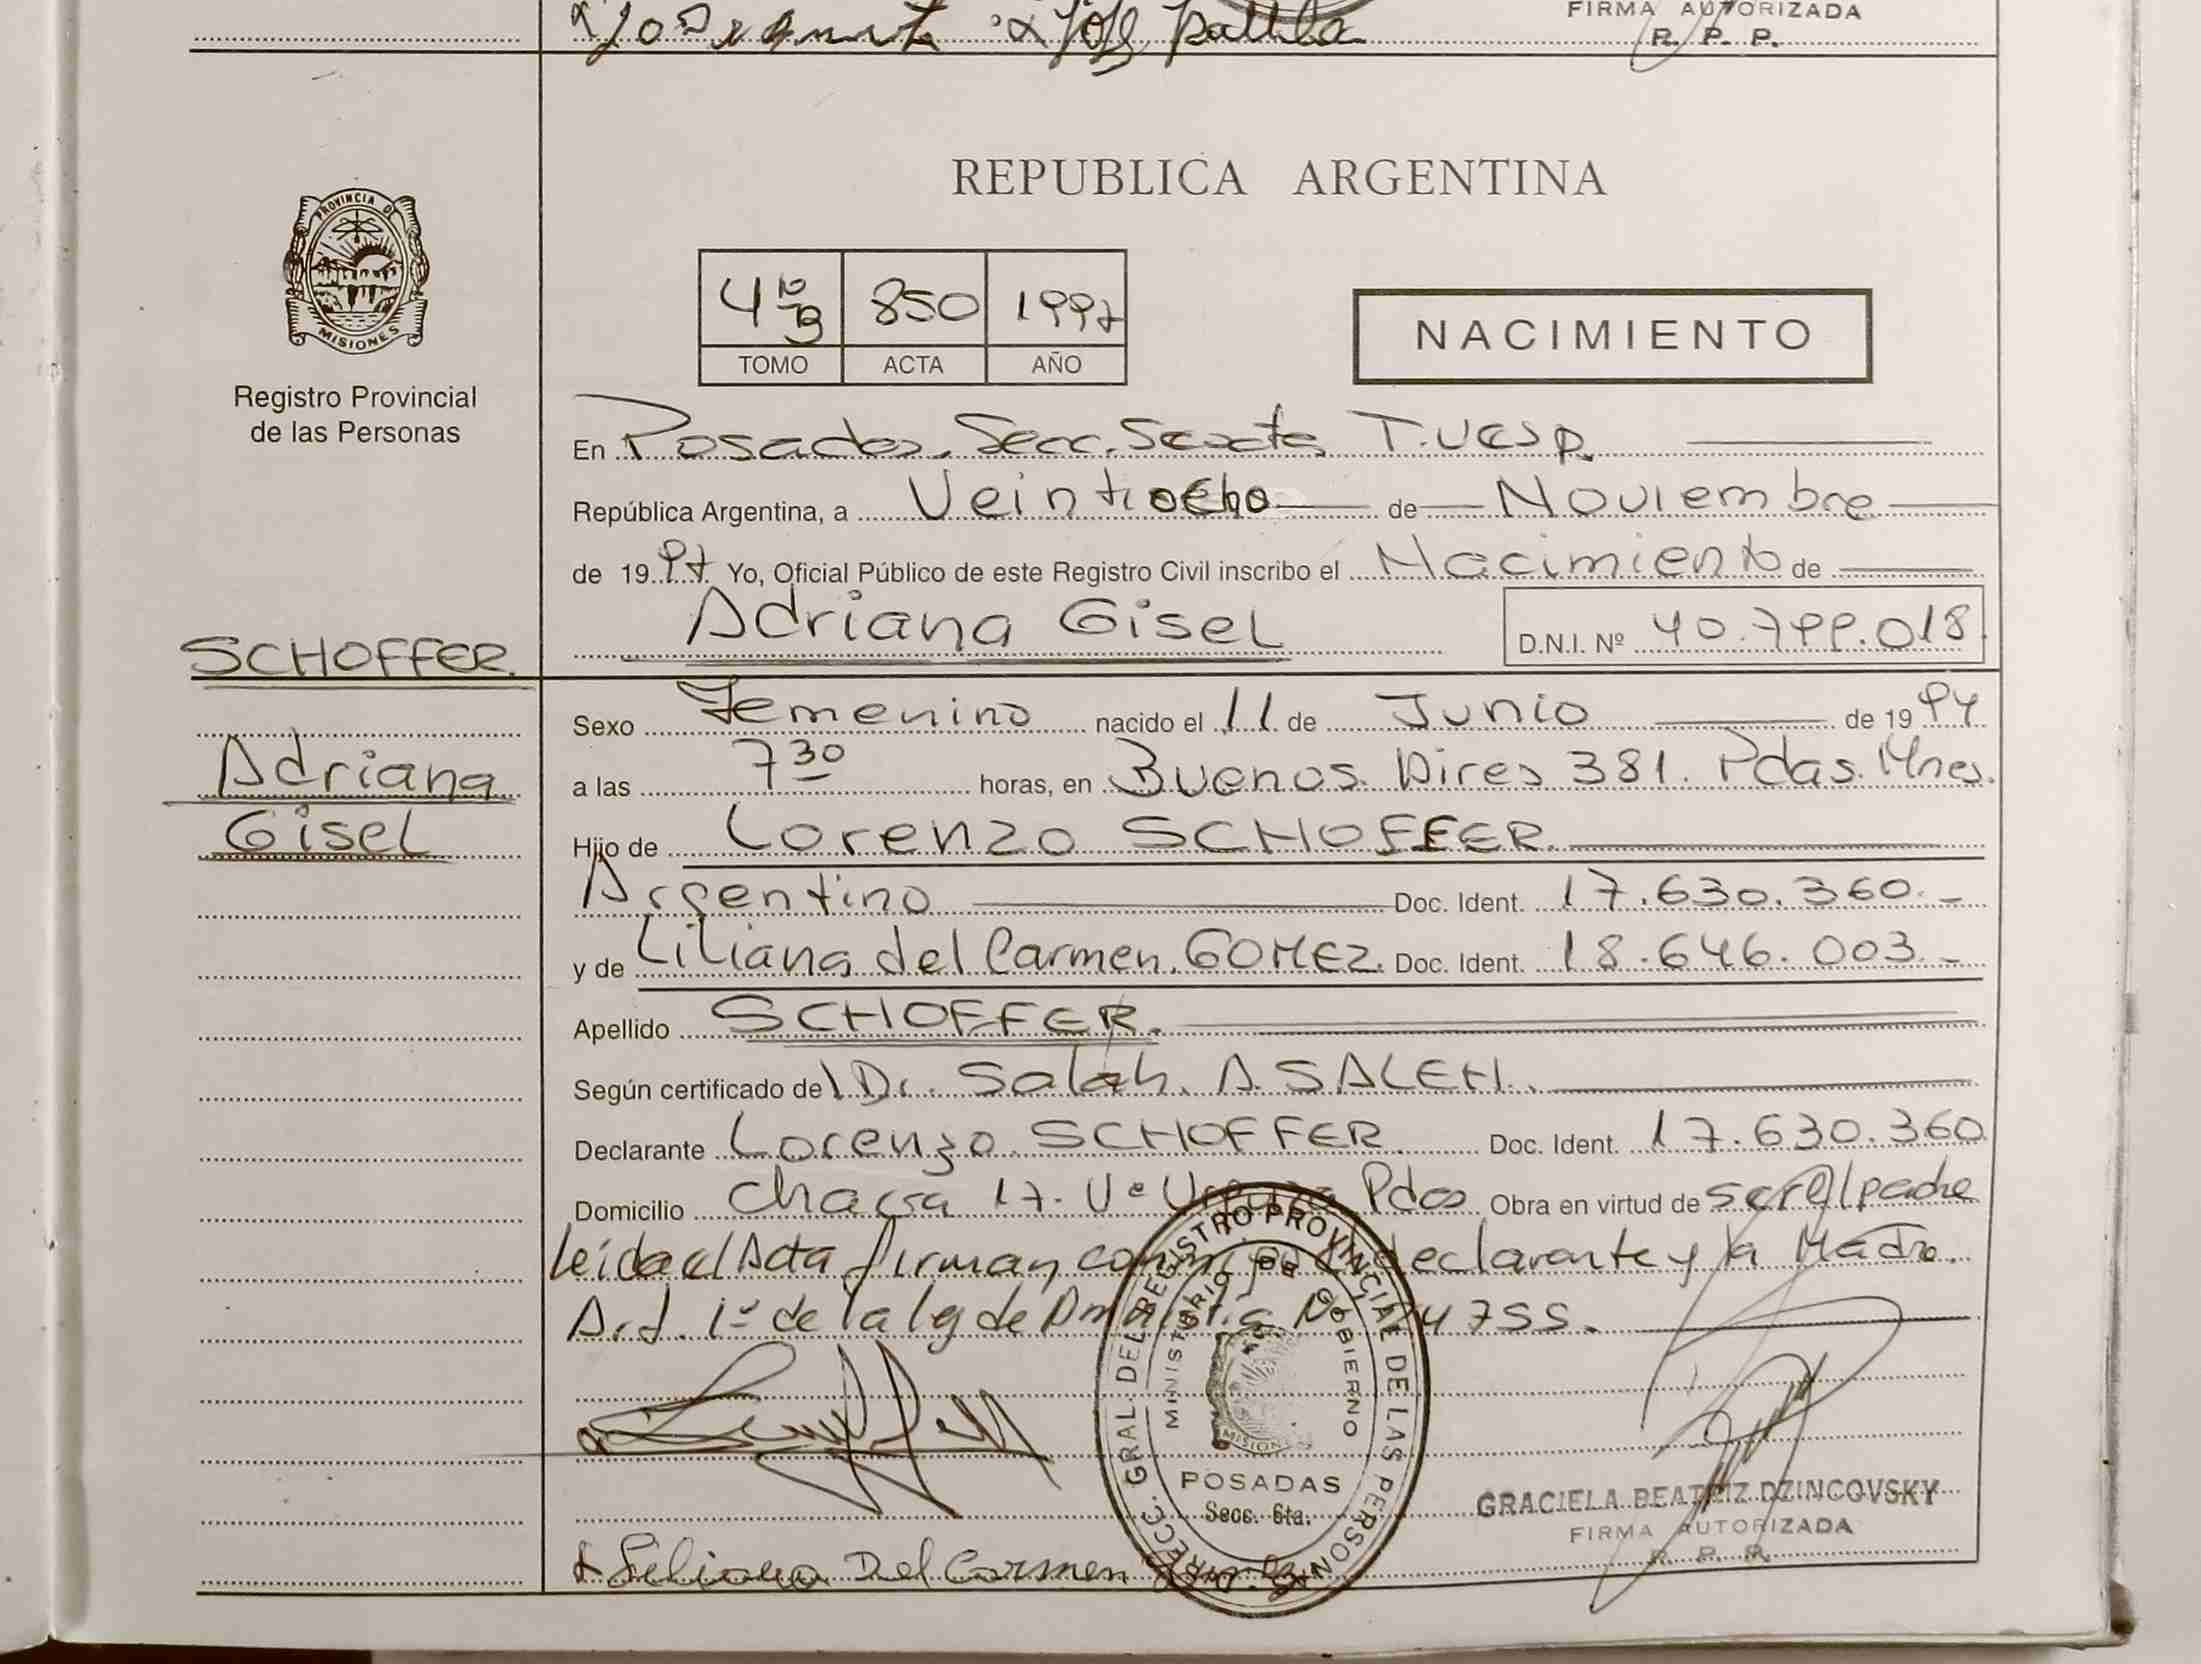 FIRMA AUTORIZADA
R. P. P.
PROVINCIA DE
MISIONES
Registro Provincial
de las Personas
REPUBLICA ARGENTINA
4to B 850 1997
TOMO ACTA AÑO
NACIMIENTO
En Posadas, Secc. Sexta, T.V.Esp.
República Argentina, a Veintiocho de Noviembre
de 1997 Yo, Oficial Público de este Registro Civil inscribo el Nacimiento de
Adriana Gisel D.N.I. Nº 40.799.018
SCHOFFER.
Adriana
Gisel
Sexo Femenino nacido el 11 de Junio de 1994
a las 7 30 horas, en Buenos Aires 381. Pdas. Mnes.
Hijo de Lorenzo SCHOFFER.
Argentino Doc. Ident. 17.630.360.-
y de Liliana del Carmen GOMEZ. Doc. Ident. 18.646.003.-
Apellido SCHOFFER.
Según certificado de Dr. Salah A. SALEH.
Declarante Lorenzo SCHOFFER. Doc. Ident. 17.630.360
Domicilio Chacra 17. Vº Pdas Obra en virtud de ser el padre
leida el Acta firman declarante y la Madre.
Art. 1º de la ley de Amnistia Nº 24755.
DIRECC. GRAL. DEL REGISTRO PROVINCIAL DE LAS PERSONAS
MINISTERIO DE GOBIERNO
MISIONES
POSADAS
Secc. 6ta.
GRACIELA BEATRIZ DZINCOVSKY
FIRMA AUTORIZADA
R. P. P.
Liliana Del Carmen